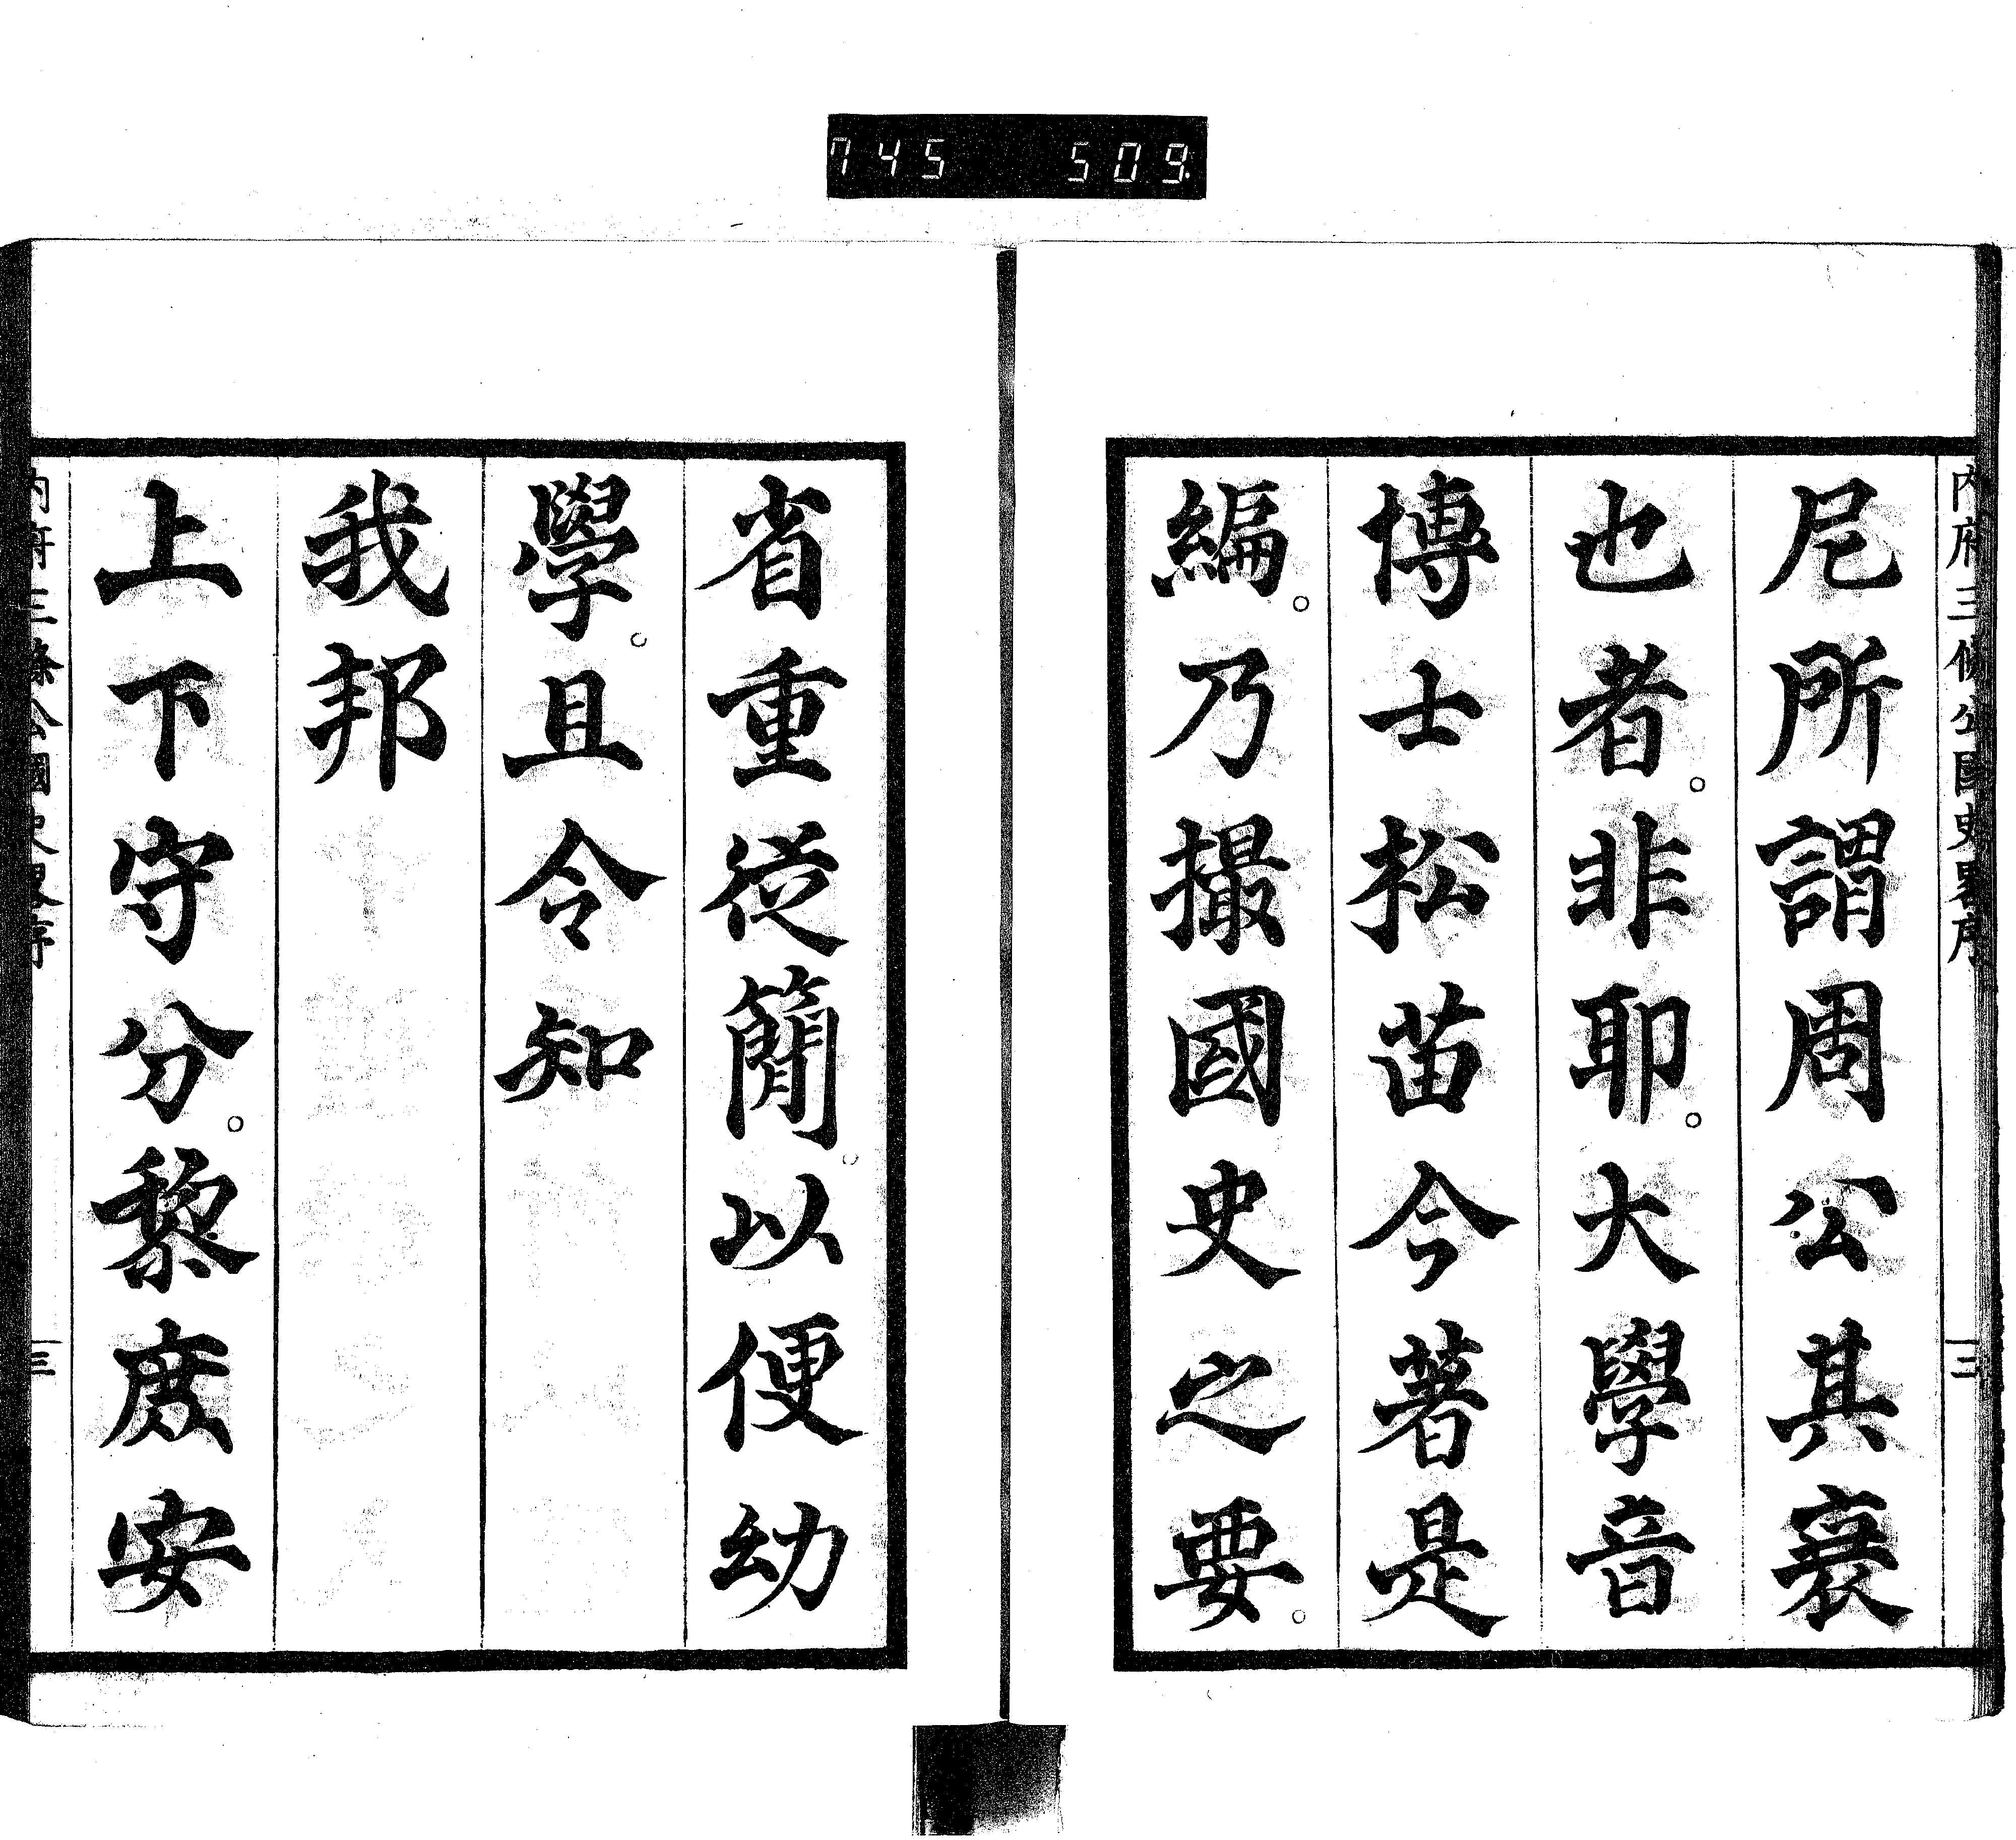 745 509
内府三條公國史畧序
二
尼所謂周公其衰
也者。非耶。大學音
博士松苗今著是
編。乃撮國史之要。
省重從簡。以便幼
學。且令知
我邦
上下守分。黎庶安
内府三條公國史畧序
三